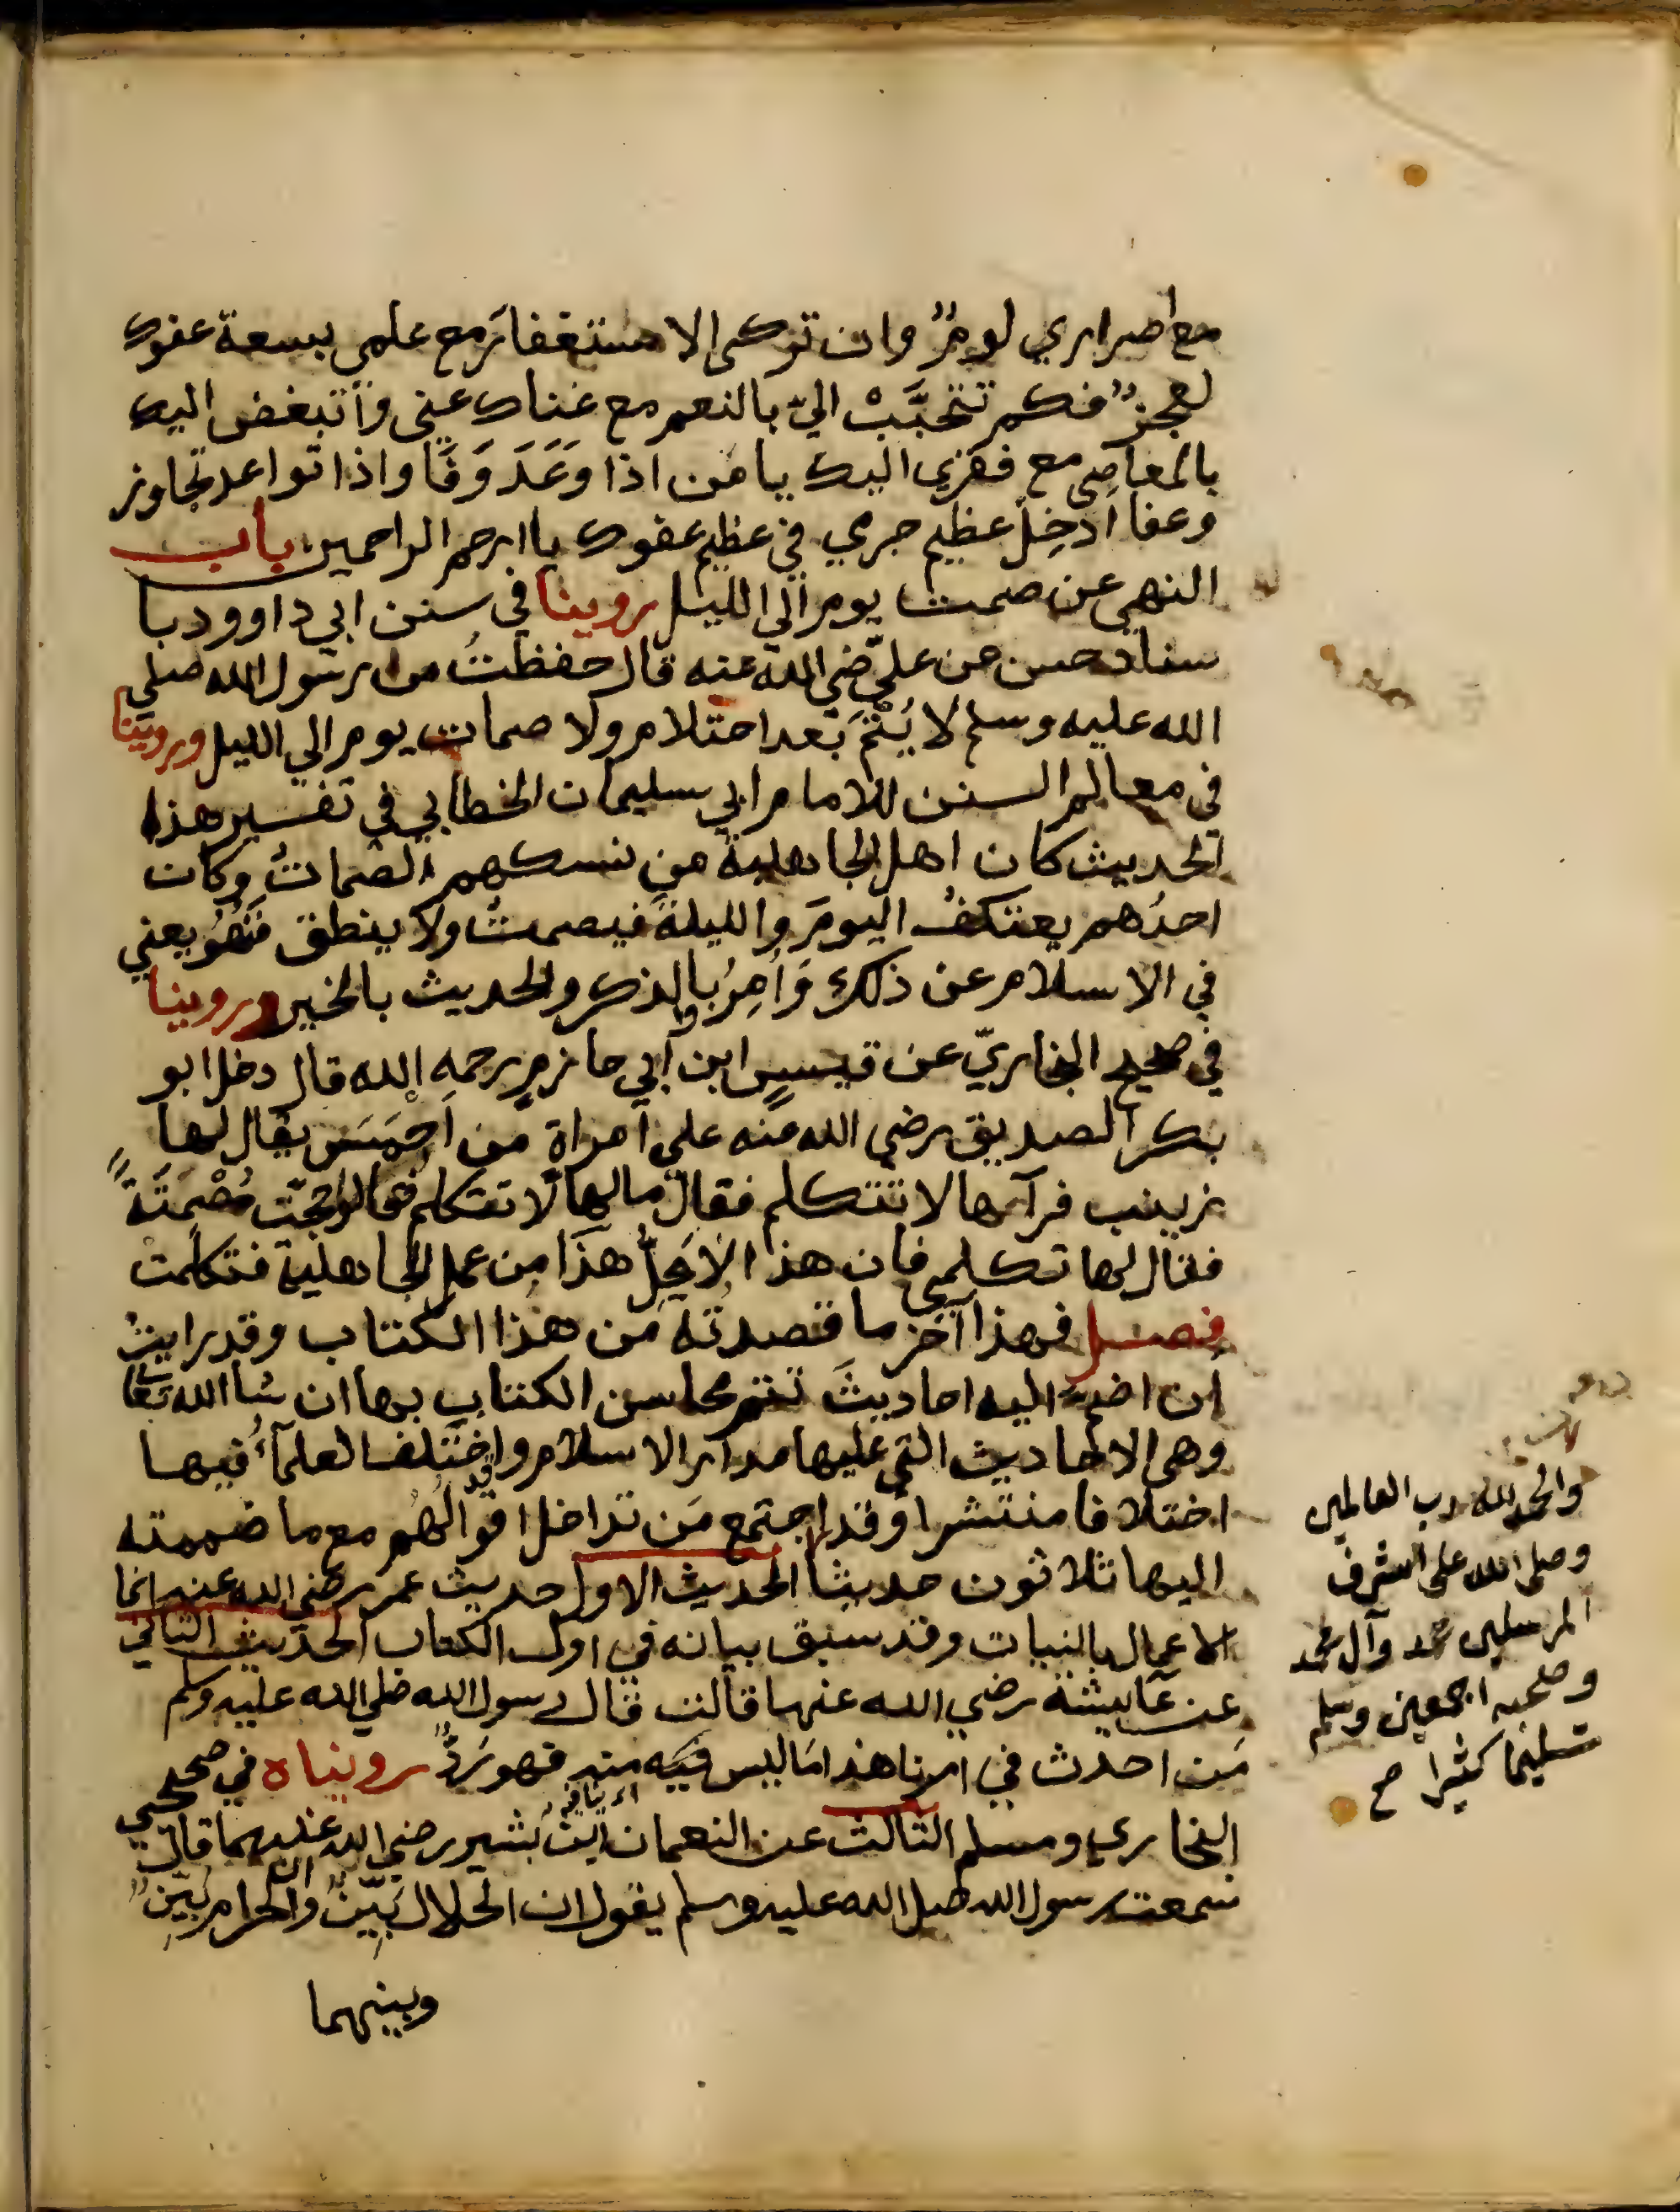 مع اصراري لومٌ وان تركي الاستغفار مع علمي بسعة عفوك
لعجزٌ فكم تتحبَّبْ اليّ بالنعم مع غناك عني وأتبغض اليك
بالمعاصي مع فقري اليك يا من اذا وَعَدَ وَفَا واذا تواعد تجاوز
وعفا ادخِل عظيم جرمي في عظيم عفوك يا ارحم الراحمين باب
النهي عن صمت يوم الى الليل روينا في سنن ابي داوود با
سناد حسن عن عليّ رضي الله عنه قال حفظتُ من رسول الله صلى
الله عليه وسلم لا يُتْمَ بَعد احتلام ولا صمات يوم الي الليل وروينا
في معالم السنن للامام ابي سليمان الخطابي في تفسير هذا
الحديث كان اهل الجاهلية من نسكهم الصّماتُ وكان
احدُهم يعتكفُ اليومَ والليلةَ فيصمتُ ولا ينطق فَنُهُو يعني
في الاسلام عن ذلك وَأُمِرُوا بالذكر والحديث بالخير وروينا
في صحيح البخاريّ عن قيسٍ ابن أبي حازمٍ رحمه الله قال دخل ابو
بكر الصديق رضي الله عنه على امراة من احمَسَ يقال لها
زينب فرآها لا تتكلم فقال ما لها لا تتكلم فقالوا حجّت مُصْمِتَةً
فقال لها تكلمي فان هذا لا يَحِلُّ هذا من عمل الجاهلية فتكلمت
فصل فهذا آخر ما قصدتُه من هذا الكتاب وقد رايتُ
ان اضمّ اليه احاديثَ تتم محاسن الكتاب بها ان شا الله تعا
وهي الاحاديث التي عليها مدار الاسلام وقد اختلف العلمآءُ فيها
اختلافا منتشرا وقد اجتمع مَن تداخل اقوالهم مع ما ضممته
اليها ثلاثون حديثا الحديث الاول حديث عمر رضي الله عنه انما
الاعمال بالنيات وقد سبق بيانه في اول الكتاب الحديث الثاني
عن عآيشة رضي الله عنها قالت قال رسول الله صلي الله عليه وسلم
مَن احدث في امرنا هذا مَا ليس فيه منه فهو رَدٌّ رويناه في صحيحي
البخاري ومسلم الثالث عن النعمان ابن بَشير رضي الله عنهما قال
سمعت رسول الله صلى الله عليه وسلم يقول ان الحلال بَيِّنٌ وان الحرام بَيِّنٌ
وبينهما
والحمد لله رب العالمين
وصلى الله على اشرف
المرسلين محمد وآل محمد
وصحبه اجمعين وسلم
تسليما كثيرا صح